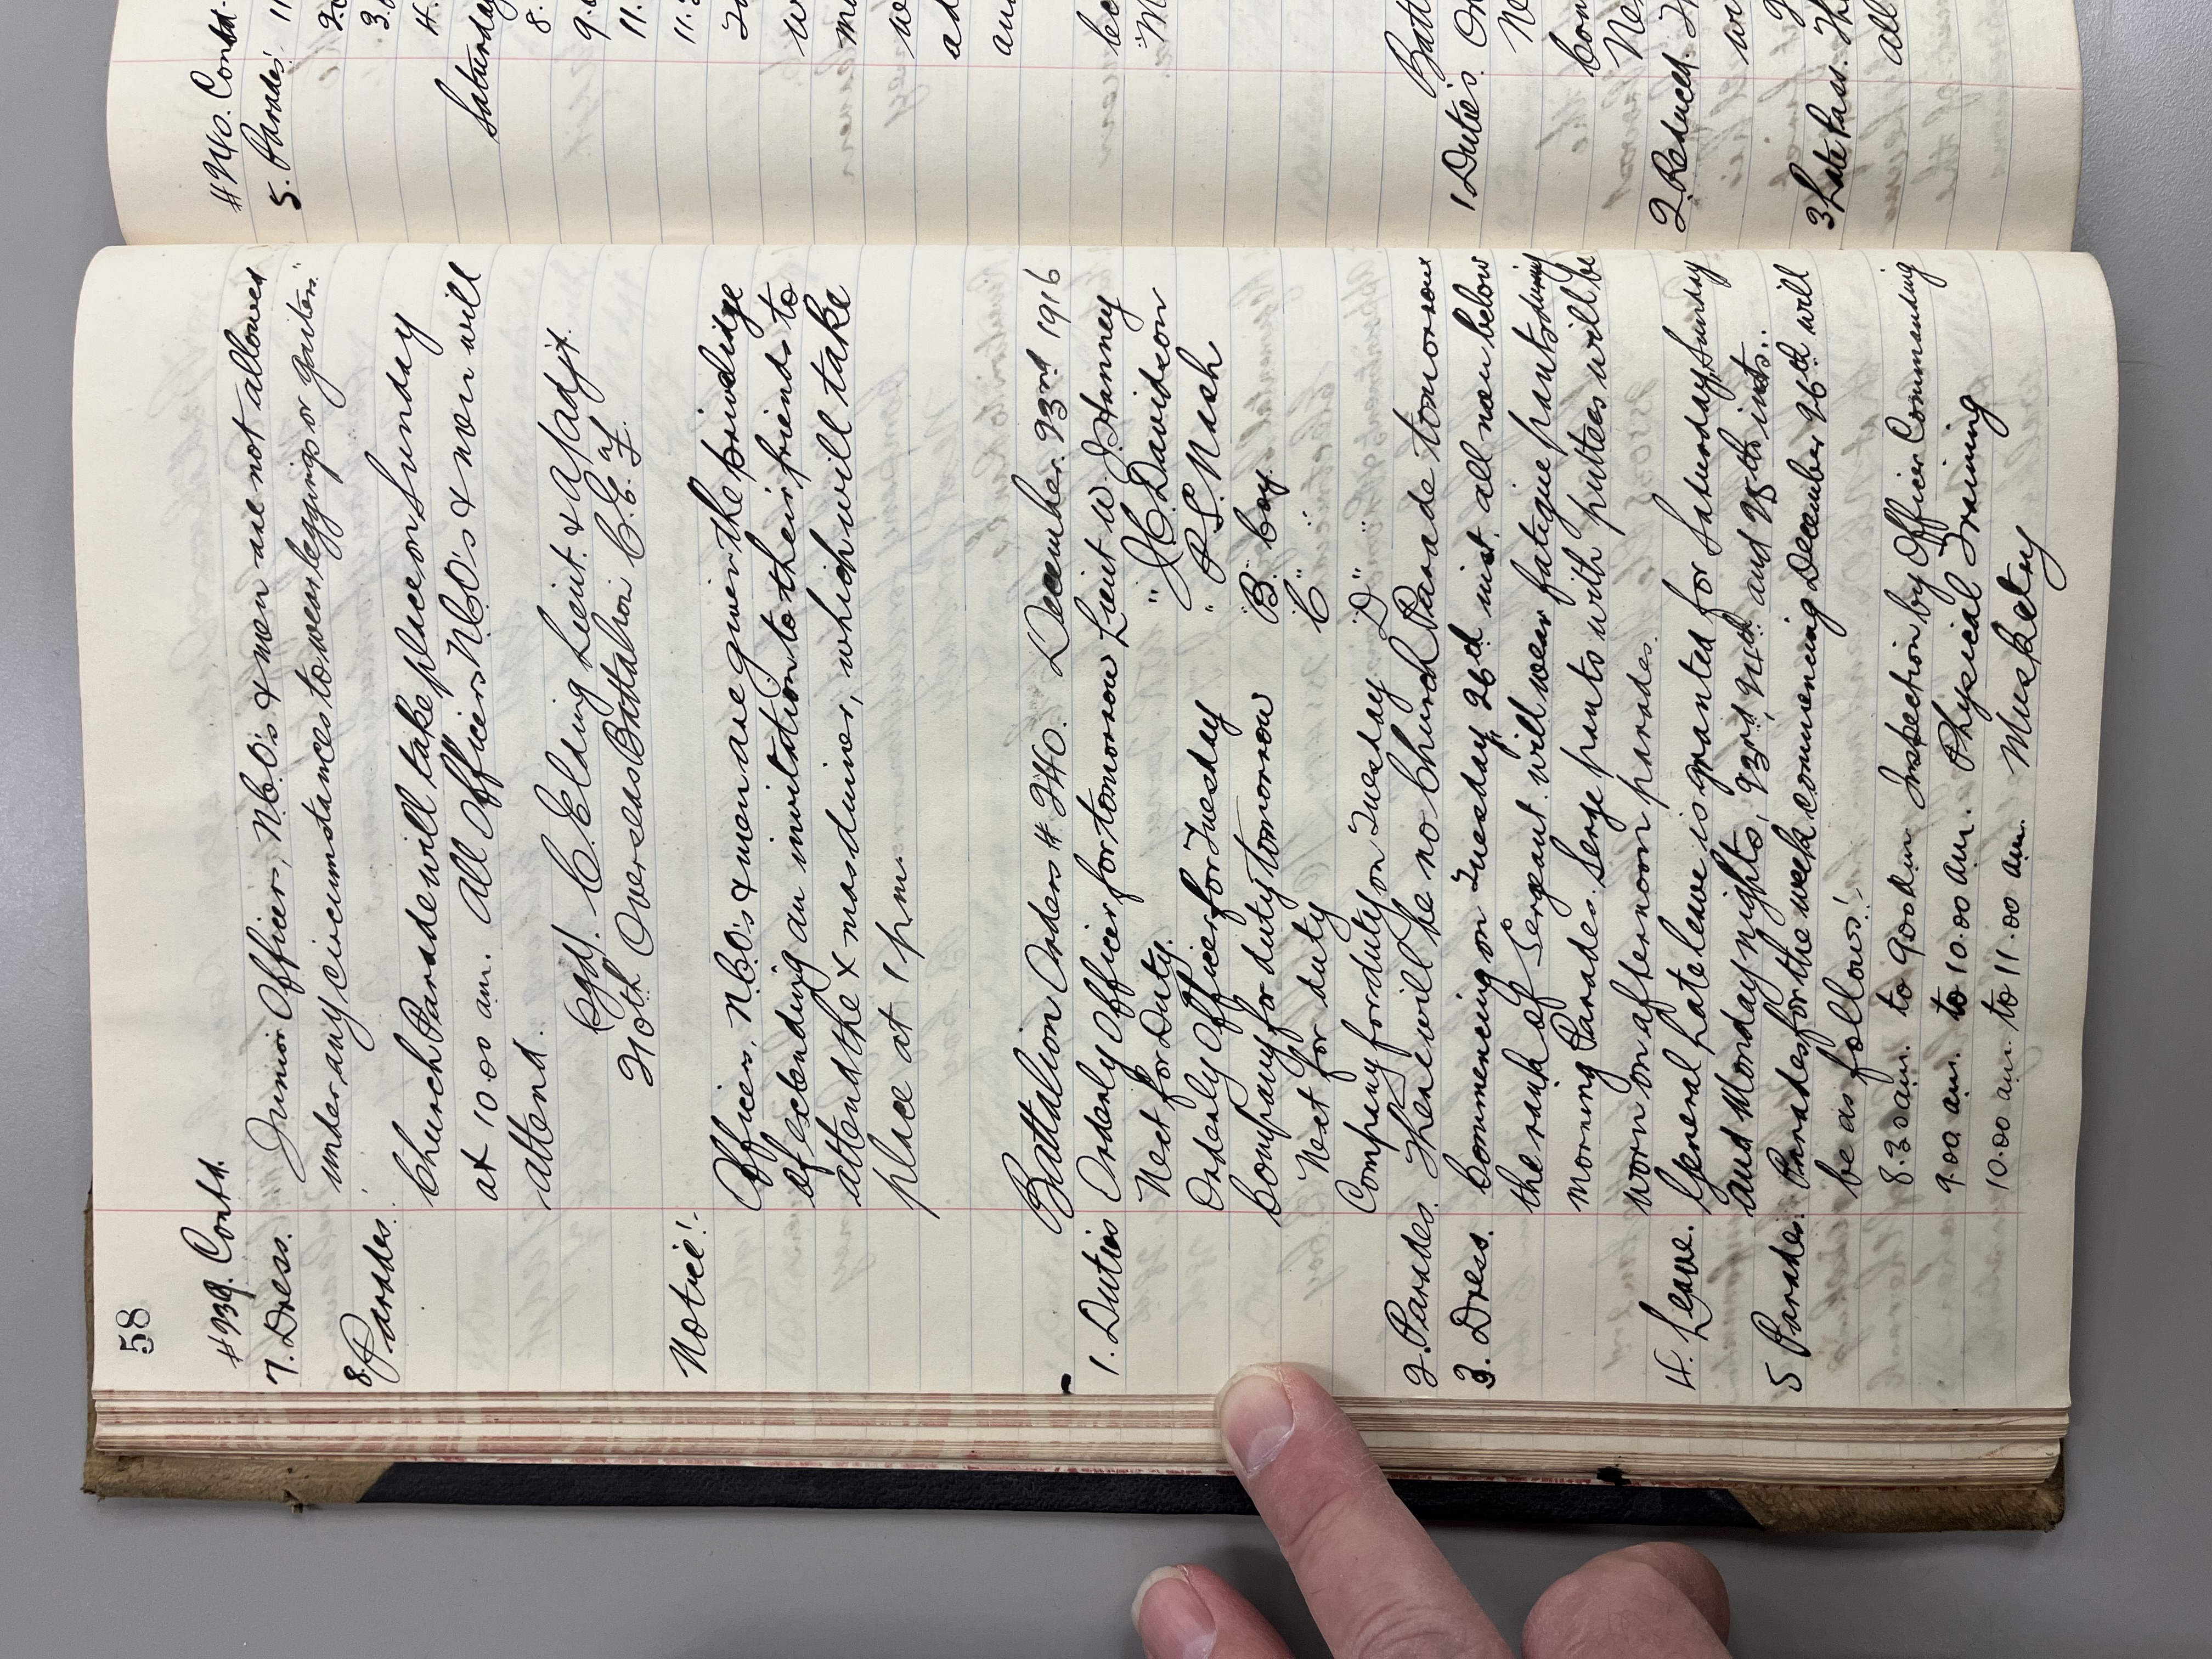 58
#239. Contd.
7. Dress. Junior Officers, N.C.O's & men are not allowed
under any circumstances to wear leggings or gaiters."
8. Parades!
Church Parade will take place on Sunday
at 10.00 am. All Officers N.C.O's & men will
attend.
(Sgd. C. Elsing Lieut. & A/Adjt.
210th Overseas Battalion C.E.F.
Notice!
Officers, N.C.O's & men are given the priviledge
of extending an invitation to their friends to
attend the Xmas dinner, which will take
place at 1 pm
Battalion Orders # 240. December. 23rd 1916
1. Duties Orderly Officer for tomorrow Lieut W. J. Hanney
Next for Duty. " J C. Davidson
Orderly Officer for Tuesday " P. S. Nash
Company for duty tomorrow B. Coy.
Next for duty C "
Company for duty on Tuesday D " "
2. Parades. There will be no Church Parade tomorrow
3. Dress. Commencing on Tuesday, 26th inst. all men below
the rank of Sergeant will wear fatigue pants during
morning Parades. Serge pants with puttees will be
worn on afternoon parades.
4. Leave. General Late leave is granted for Saturday, Sunday
and Monday nights, 23rd, 24th and 25th insts.
5 Parades. Parades for the week commencing December 26th will
be as follows!
8.30 am. to 9.00 am Inspection by Officer Commanding
9.00 am. to 10.00 am. Physical Training
10.00 am. to 11.00 am. Musketry
#240. Contd.
5. Parades! 11
3.
4.
Saturday
8.
11.
11.
ad
Batt
1 Duties. Or
Ne
Com
Ne
2. Reduced.
3 Late Pass. Th
all